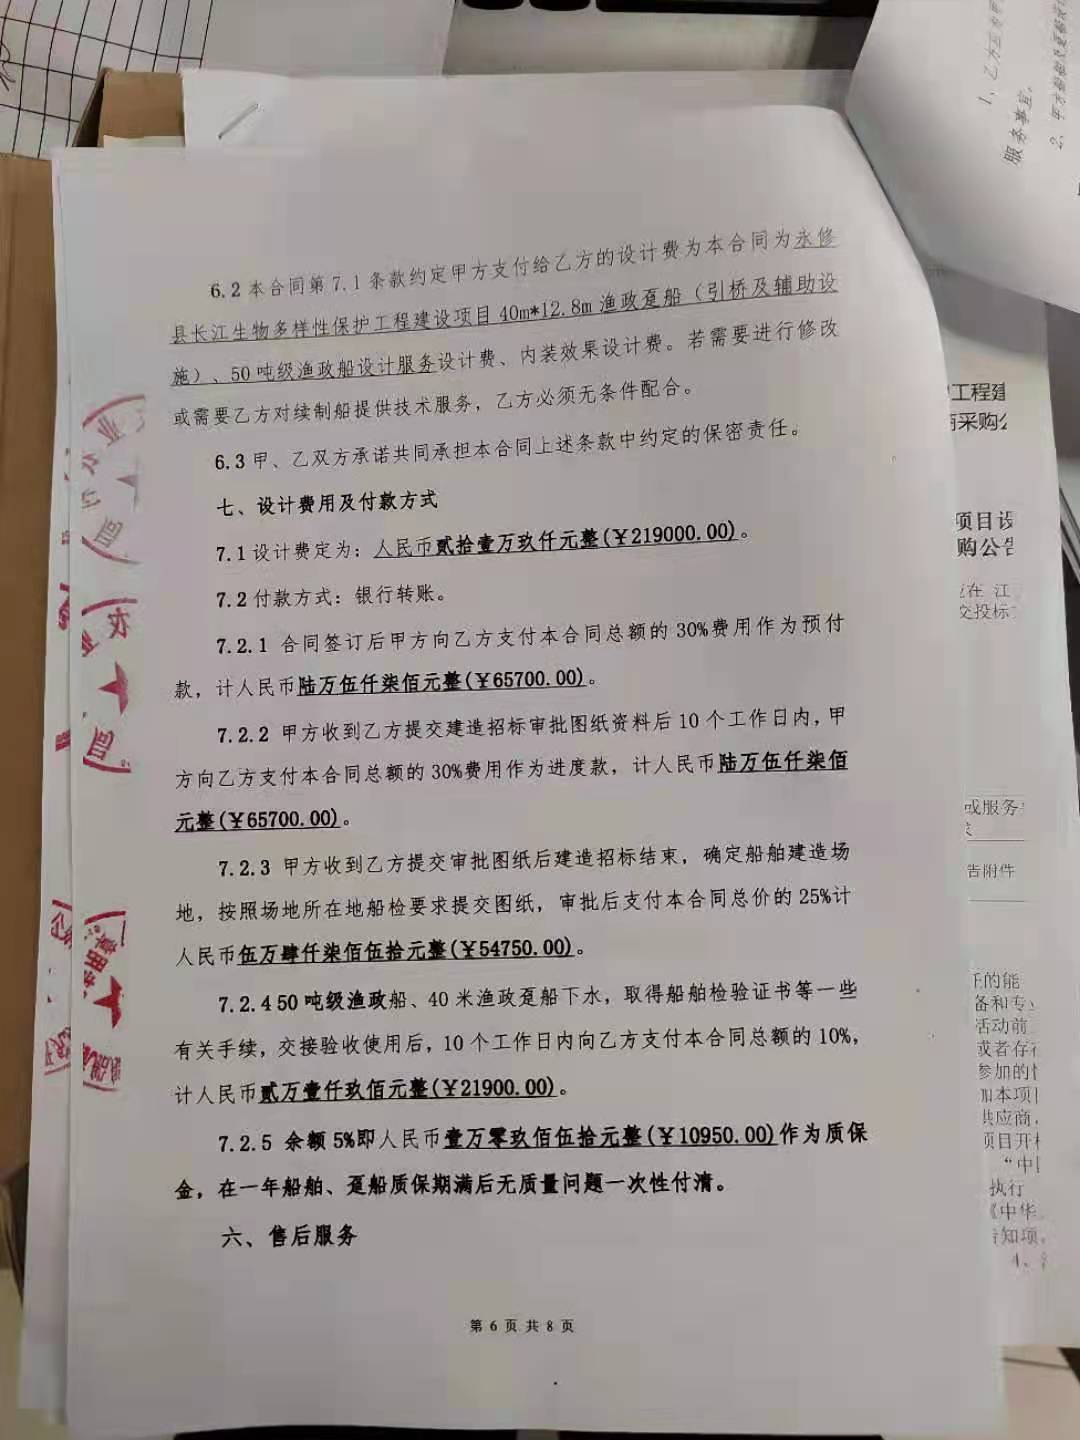 6.2 本合同第 7.1 条款约定甲方支付给乙方的设计费为本合同为永修
县长江生物多样性保护工程建设项目 40m*12.8m 渔政趸船（引桥及辅助设
施）、50 吨级渔政船设计服务设计费、内装效果设计费。若需要进行修改
或需要乙方对续制船提供技术服务，乙方必须无条件配合。
6.3 甲、乙双方承诺共同承担本合同上述条款中约定的保密责任。
七、设计费用及付款方式
7.1 设计费定为：人民币贰拾壹万玖仟元整(￥219000.00)。
7.2 付款方式：银行转账。
7.2.1 合同签订后甲方向乙方支付本合同总额的 30%费用作为预付
款，计人民币陆万伍仟柒佰元整(￥65700.00)。
7.2.2 甲方收到乙方提交建造招标审批图纸资料后 10 个工作日内，甲
方向乙方支付本合同总额的 30%费用作为进度款，计人民币陆万伍仟柒佰
元整(￥65700.00)。
7.2.3 甲方收到乙方提交审批图纸后建造招标结束，确定船舶建造场
地，按照场地所在地船检要求提交图纸，审批后支付本合同总价的 25%计
人民币伍万肆仟柒佰伍拾元整(￥54750.00)。
7.2.4 50 吨级渔政船、40 米渔政趸船下水，取得船舶检验证书等一些
有关手续，交接验收使用后，10 个工作日内向乙方支付本合同总额的 10%，
计人民币贰万壹仟玖佰元整(￥21900.00)。
7.2.5 余额 5%即人民币壹万零玖佰伍拾元整(￥10950.00)作为质保
金，在一年船舶、趸船质保期满后无质量问题一次性付清。
六、售后服务
第 6 页 共 8 页
服务事宜。
工程建
采购公
项目设
购公告
在 江
交投标
或服务
告附件
的能
备和专
活动前
或者存在
参加的
加本项
供应商，
项目开
“中
执行
《中华
告知项
4、